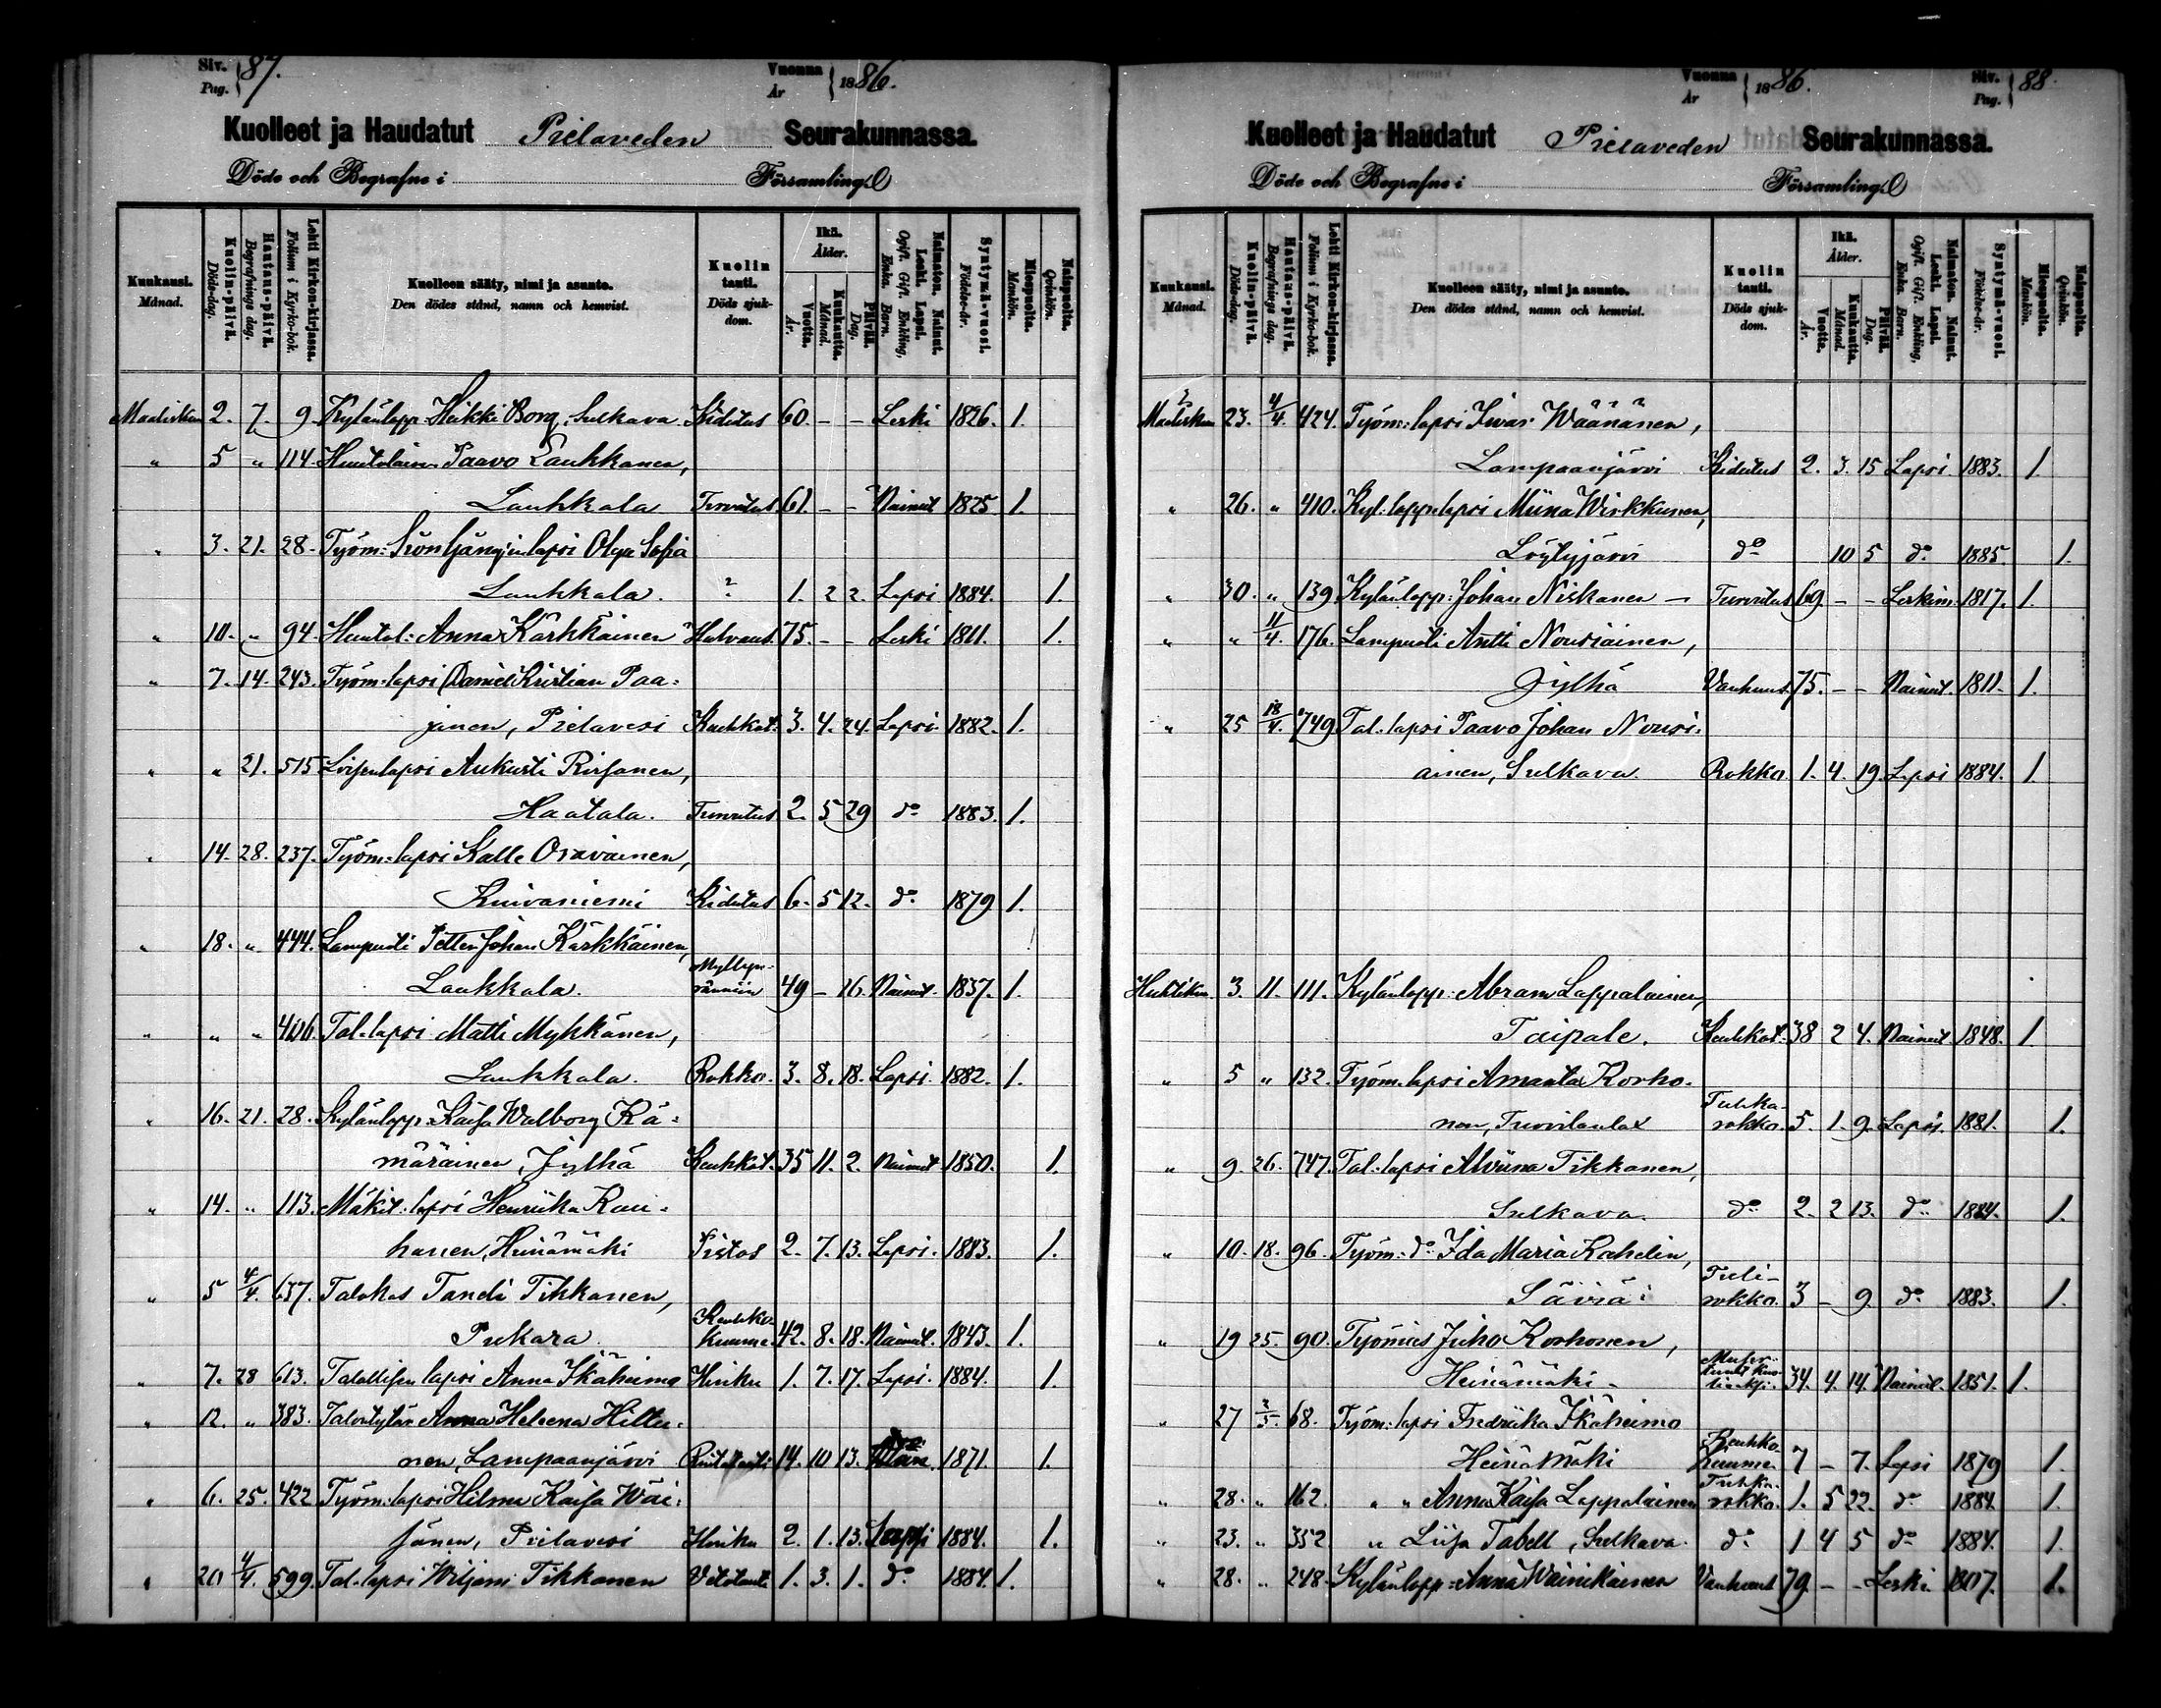 Siv. Pag. 87.
Vuonna År 1886.
Kuolleet ja Haudatut Pielaveden Seurakunnassa.
Döde och Begrafne i Församling.
Kuukausi. Månad.
Kuolin-päivä. Döds-dag.
Hautaus-päivä. Begrafnings dag.
Lehti Kirkon-kirjassa. Folium i Kyrko-bok.
Kuolleen sääty, nimi ja asunto. Den dödes stånd, namn och hemvist.
Kuolin tauti. Döds sjukdom.
Ikä. Ålder.
Vuotta. År.
Kuukautta. Månad.
Päivää. Dag.
Naimaton. Nainut. Leski. Lapsi. Ogift. Gift. Enkling, Enka. Barn.
Syntymä-vuosi. Födelse-år.
Miespuolta. Mankön.
Naispuolta. Qvinkön.
Maaliskuu 2. 7. 9. Kyläulopp. Heikki Borg, Sulkava Kidutus 60. - - Leski 1826. 1.
" 5 " 114. Huutolainen Paavo Laukkanen,
Laukkala Turvutus 61. - - Nainut 1825. 1.
" 3. 21. 28. Työm: lapsi Olga Sofia
Laukkala. ? 1. 2 2. Lapsi 1884. 1.
" 10. " 94. Huutol: Anna Kärkkäinen Halvaus. 75. - - Leski 1811. 1.
" 7. 14. 243. Työm: lapsi Daniel Kristian Paa-
janen, Pielavesi Keuhkot. 3. 4. 24. Lapsi. 1882. 1.
" " 21. 515. Loisenlapsi Aukusti Rissanen,
Haatala. Turvutus 2. 5 29 do 1883. 1.
" 14. 28. 237. Työm: lapsi Kalle Oravainen,
Kuivaniemi Kidutus 6. 5 12. do 1879 1.
" 18. " 444. Lampuoti Petter Johan Kärkkäinen,
Laukkala. 49 - 26. Nainut. 1837. 1.
" " " 406. Tal. lapsi Matti Mykkänen,
Laukkala. Rokko. 3. 8. 18. Lapsi. 1882. 1.
" 16. 21. 28. Kyläulopp: Kaisa Walborg Kä-
märäinen, Jylhä Keuhkot. 35 11. 2. Nainut. 1850. 1.
" 14. " 113. Mäkit. lapsi Henriika Rau-
hanen, Heinämäki Pistos 2. 7. 13. Lapsi. 1883. 1.
" 5 4/4. 637. Talokas Taneli Tikkanen,
Pukara. Keuhko-kuume. 42. 8. 18. Nainut. 1843. 1.
" 7. 28 613. Talollisen lapsi Anna Ikäheimo Hinku 1. 7. 17. Lapsi. 1884. 1.
" 12. " 383. Talontytär Anna Helena Hiltu-
nen, Lampaanjärvi Rintatauti 14. 10 13. 1871. 1.
" 6. 25. 422 Työm: lapsi Hilma Kaisa Wäi-
sänen, Pielavesi Hinku 2. 1. 13. Lapsi 1884. 1.
" 20 4/4. 599. Tal. lapsi Wiljam Tikkanen Vetotauti 1. 3. 1. do 1884. 1.
Vuonna År 1886.
Siv. Pag. 88.
Kuolleet ja Haudatut Pielaveden Seurakunnassa.
Döde och Begrafne i Församling.
Kuukausi. Månad.
Kuolin-päivä. Döds-dag.
Hautaus-päivä. Begrafnings dag.
Lehti Kirkon-kirjassa. Folium i Kyrko-bok.
Kuolleen sääty, nimi ja asunto. Den dödes stånd, namn och hemvist.
Kuolin tauti. Döds sjukdom.
Ikä. Ålder.
Vuotta. År.
Kuukautta. Månad.
Päivää. Dag.
Naimaton. Nainut. Leski. Lapsi. Ogift. Gift. Enkling, Enka. Barn.
Syntymä-vuosi. Födelse-år.
Miespuolta. Mankön.
Naispuolta. Qvinkön.
Maaliskuu 23. 4/4. 424. Työm: lapsi Iivar Wäänänen,
Lampaanjärvi Kidutus 2. 3. 15 Lapsi. 1883. 1.
" 26. " 410. Kyl: lopp: lapsi Miina Wirkkunen,
Löytyjärvi do 10 5 do. 1885. 1.
" 30. " 139 Kyläulopp: Johan Niskanen - Turvutus 69 - - Leskim. 1817. 1.
" " 11/4. 176. Lampuoti Antti Nousiainen,
Jylhä Vanhuus. 75. - - Nainut. 1811. 1.
" 25 18/4. 749 Tal. lapsi Paavo Johan Nousi-
ainen, Sulkava. Rokko. 1. 4. 19. Lapsi 1884. 1.
Huhtikuu. 3. 11. 111. Kyläulopp: Abram Lappalainen,
Taipale. Keuhkot. 38 2 4. Nainut 1848. 1.
" 5 " 132. Työm. lapsi Amanta Korho-
nen, Tuhkarokko. 5. 1. 9. Lapsi. 1881. 1.
" 9. 26. 747. Tal: lapsi Alviina Tikkanen,
Sulkava. do 2. 2 13. do 1884. 1.
" 10. 18. 96. Työm: do. Ida Maria Kahelin,
Säviä: Tulirokko. 3 - 9. do. 1883. 1.
" 19 25. 90. Työmies Juho Korhonen,
Heinämäki. 34. 4. 14. Nainut. 1851. 1.
" 27 2/5. 68. Työm: lapsi Fredriika Ikäheimo
Heinämäki Keuhko-kuume. 7 - 7. Lapsi 1879 1.
" 28. " 162. " " Anna Kaisa Lappalainen Tuhka-rokko. 1. 5 22. do 1884. 1.
" 23. " 352. " Liisa Tabell, Sulkava. do. 1 4 5 do 1884. 1.
" 28. " 248. Kyläulopp: Anna Wäinikäinen Vanhuus 79 - - Leski 1807. 1.